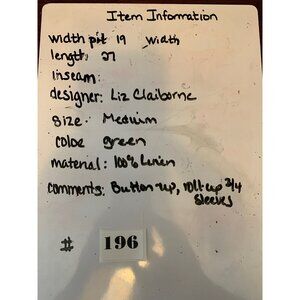 Item Information
width pit 19 width
length: 27
inseam:
designer: Liz Claiborne
size: Medium
color green
material: 100% Linen
comments: Button-up, roll up 3/4
sleeves
# 196